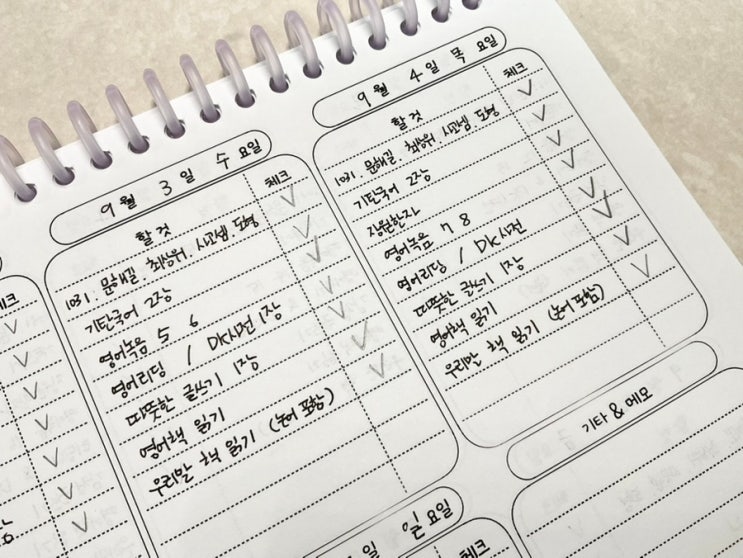 9월 3일 수요일
할 것 체크
1031. 문해길. 최상위. 사고셈. 도형
기탄국어 2장
영어녹음 5 6
영어리딩 / DK사전 1장
따뜻한 글쓰기 1장
영어책 읽기
우리말 책 읽기 (논어 포함)
9월 4일 목요일
할 것 체크
1031. 문해길. 최상위. 사고셈. 도형
기탄국어 2장
장원한자
영어녹음 7 8
영어리딩 / DK사전
따뜻한 글쓰기 1장
영어책 읽기
우리말 책 읽기 (논어 포함)
체크
일 일요일
체크
기타 & 메모